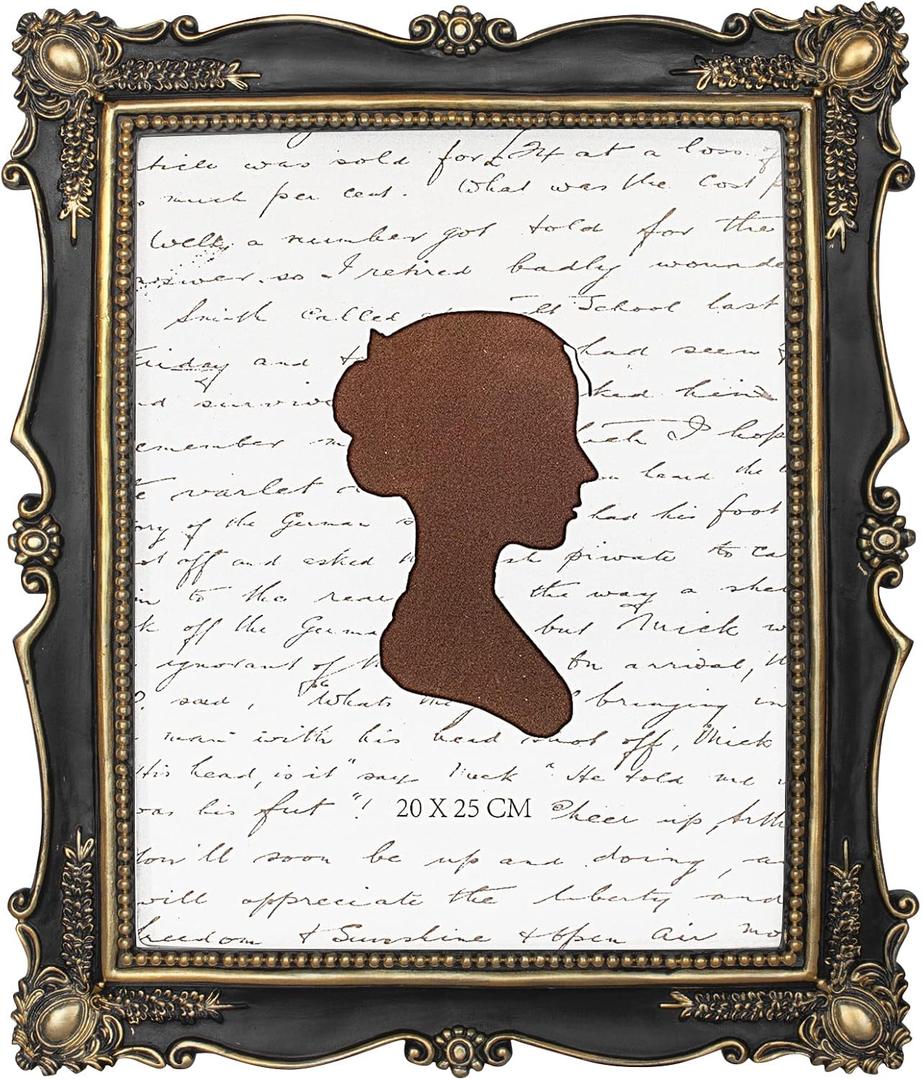 was sold for £24 at a loss of
much per cent. What was the cost
Well, a number got told for the
so I retired badly wounde
Smith called School last
Friday and had seen
d surviv ked him
emember m I hop
varlet heard the
ory of the German s had his foot
ot off and asked private to ca
in to the rear the way a she
k off the Germa but Mick w
ignorant of On arrival,
said, "Whats bringing in
man with his head shot off, Mick
His head, is it" says Mick "He told me
was his fut"! Cheer up, Arth
20 X 25 CM
You'll soon be up and doing, an
will appreciate the liberty and
freedom & Sunshine & open air mo